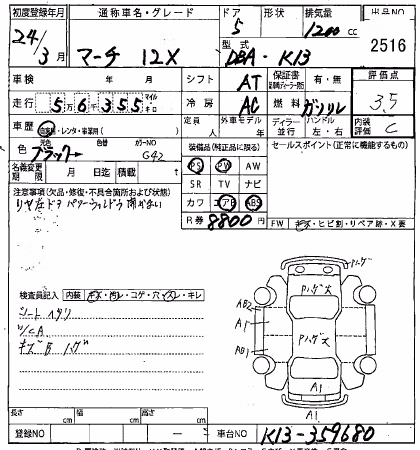 初度登録年月 通称車名・グレード ドア 形状 排気量 出品NO
24/3月 マーチ 12X 5 1200cc
型式 DBA・K13 2516
車検 年 月 シフト AT 保証書 有・無 評価点
走行 5 6 3 5 5 マイル キロ 冷房 AC 燃料 ガソリン 3.5
車歴 自家用・レンタ・事業用( ) 定員 人 外車モデル 年 ディーラー 並行 ハンドル 左・右 内装評価 C
色 ブラック 色替 カラーNO G42 装備品(純正品に限る) セールスポイント(正常に機能するもの)
名義変更期限 月 日迄 積載 t PS PW AW
注意事項(欠品・修復・不具合箇所および状態) SR TV ナビ
リヤ左ドア パワーウィンドウ 開かない カワ エアB ABS
R券 8800 FW キズ・ヒビ割・リペア跡・X要
検査員記入 内装 キズ・汚レ・コゲ・穴・スレ・キレ
シート
キズB ハゲ
ハゲ
ハゲ大
AB2
A1
ハゲ大
AB1
A1
A1
長さ cm 幅 cm 高さ cm
登録NO ー 車台NO K13-359680